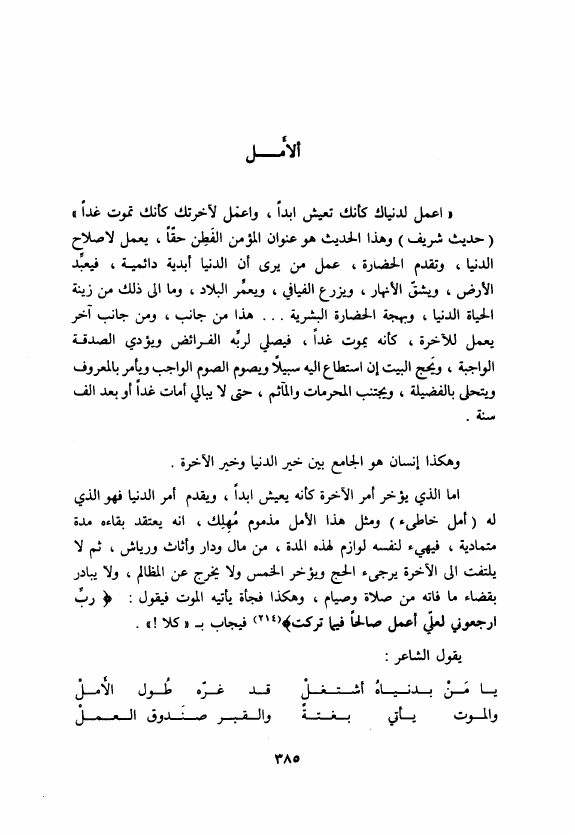 ألأمَــــل
« اعمل لدنياك كأنك تعيش ابداً ، واعمَل لآخرتك كأنك تموت غداً »
( حديث شريف ) وهذا الحديث هو عنوان المؤمن الفَطِن حقّاً ، يعمل لاصلاح
الدنيا ، وتقدم الحضارة ، عمل من يرى أن الدنيا أبدية دائمية ، فيعبِّد
الأرض ، ويشقّ الأنهار ، ويزرع الفيافي ، ويعمِّر البلاد ، وما الى ذلك من زينة
الحياة الدنيا ، وبهجة الحضارة البشرية ... هذا من جانب ، ومن جانب آخر
يعمل للآخرة ، كأنه يموت غداً ، فيصلي لربِّه الفرائض ويؤدي الصدقة
الواجبة ، ويَحج البيت إن استطاع اليه سبيلاً ويصوم الصوم الواجب ويأمر بالمعروف
ويتحلى بالفضيلة ، ويجتنب المحرمات والمآثم ، حتى لا يبالي أمات غداً أو بعد الف
سنة .
وهكذا إنسان هو الجامع بين خير الدنيا وخير الآخرة .
اما الذي يؤخر أمر الآخرة كأنه يعيش ابداً ، ويقدم أمر الدنيا فهو الذي
له ( أمل خاطىء ) ومثل هذا الأمل مذموم مُهلِك ، انه يعتقد بقاءه مدة
متمادية ، فيهيء لنفسه لوازم لهذه المدة ، من مال ودار وأثاث ورياش ، ثم لا
يلتفت الى الآخرة يرجىء الحج ويؤخر الخمس ولا يخرج عن المظالم ، ولا يبادر
بقضاء ما فاته من صلاة وصيام ، وهكذا فجأة يأتيه الموت فيقول : ﴿ ربِّ
ارجعوني لعلّي أعمل صالحاً فيما تركت﴾(٢١٤) فيجاب بـ « كلا ! » .
يقول الشاعر :
يـا مَـنْ بـدنيـاهُ أشتـغـلْ قـد غـرّه طُـول الأمـلْ
والمـوت يـأتي بـغـتـةً والـقبـر صـنَـدوق الـعمـلْ
٣٨٥